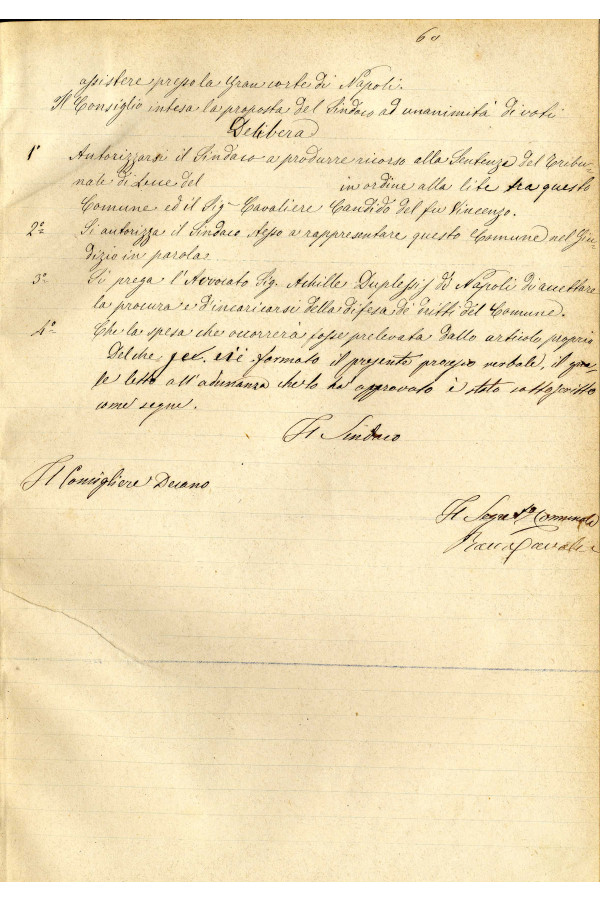 60
assistere presso la Gran Corte di Napoli.
Il Consiglio intesa la proposta del Sindaco ad unanimità di voti
Delibera
1° Autorizzarsi il Sindaco a produrre ricorso alla Sentenza del Tribu-
nale di Lecce del in ordine alla lite tra questo
Comune ed il Sig. Cavaliere Candido del fu Vincenzo.
2° Si autorizza il Sindaco stesso a rappresentare questo Comune nel Giu-
dizio in parola.
3° Si prega l'Avvocato Sig. Achille Duplessis di Napoli di accettare
la procura e d'incaricarsi della difesa de' dritti del Comune.
4° Che la spesa che occorrerà fosse prelevata dallo articolo proprio
Del che si è formato il presente processo verbale, il qua-
le letto all'adunanza che lo ha approvato è stato sottoscritto
come segue.
Il Sindaco
Il Consigliere Decano
Il Segret.o Comunale